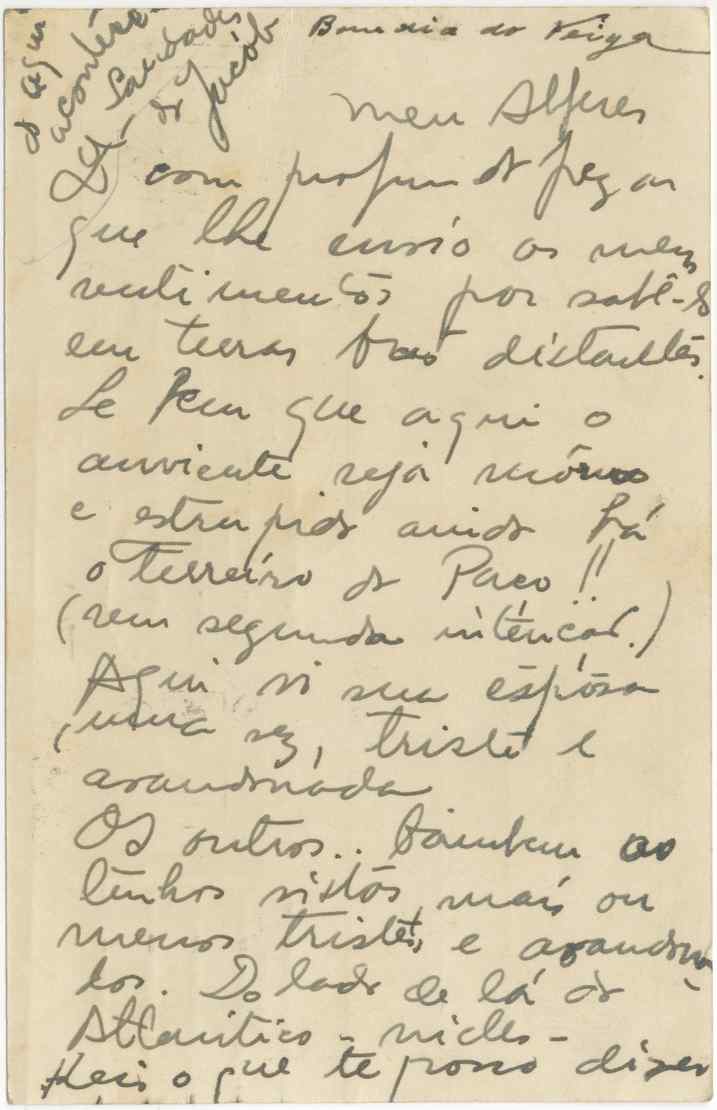 Bom dia do Veiga
Meu Alferes
É com profundo pezar
que lhe envio os meus
sentimentos por sabê-lo
em terras tão distantes.
Se bem que aqui o
anviente seja môrno
e estupido ainda há
o Terreiro do Paço!!
(sem segunda intenção.)
Aqui vi sua espôsa
uma vez, triste e
avandonáda
Os outros.. também os
tenho vistos, mais ou
menos tristes, e avandona-
dos. Do lado de lá do
Atlantico - nicles -
Heis o que te posso dizer
do aqui
acontece
Saudades
do Jacób